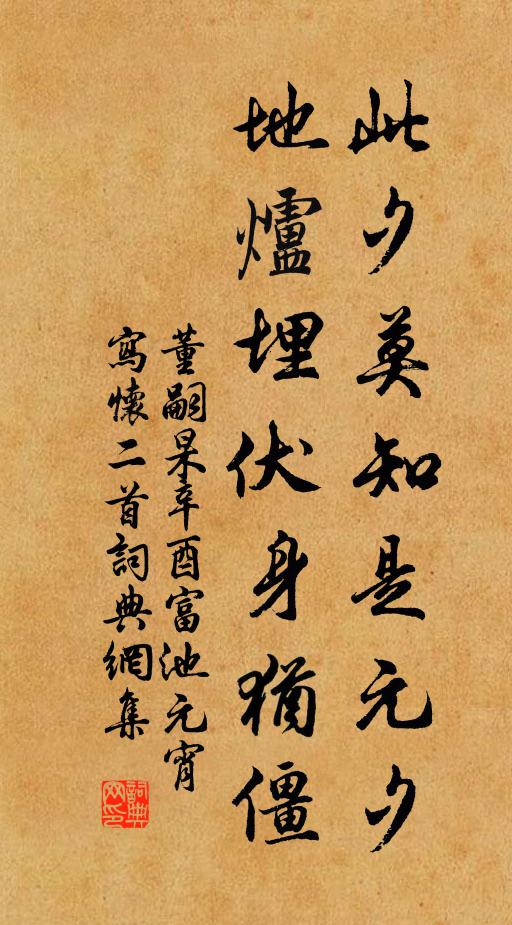 此夕莫知是元夕
地爐埋伏身猶僵
董嗣杲辛酉富池元宵
寫懷二首詞典網集
詞典网印